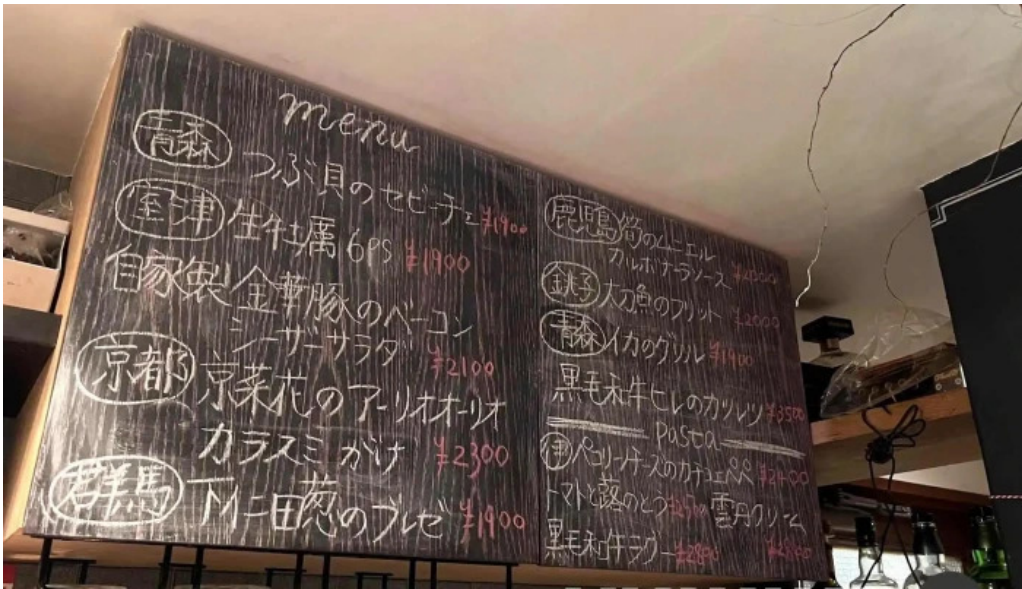 menu
青森 つぶ貝のセビーチェ ¥1900
室津 生牡蠣 6ps ¥1900
自家製 金華豚のベーコン
シーザーサラダ ¥2100
京都 京菜花のアーリオオーリオ
カラスミがけ ¥2300
群馬 下仁田葱のブレゼ ¥1900
鹿児島 筍のムニエル
カルボナーラソース
銚子 太刀魚のフリット ¥2000
青森 イカのグリル ¥1900
黒毛和牛ヒレのカツレツ ¥3500
pasta
ペコリーノチーズのカチョエペペ ¥2400
トマトと
雲丹クリーム
黒毛和牛ラグー ¥2800